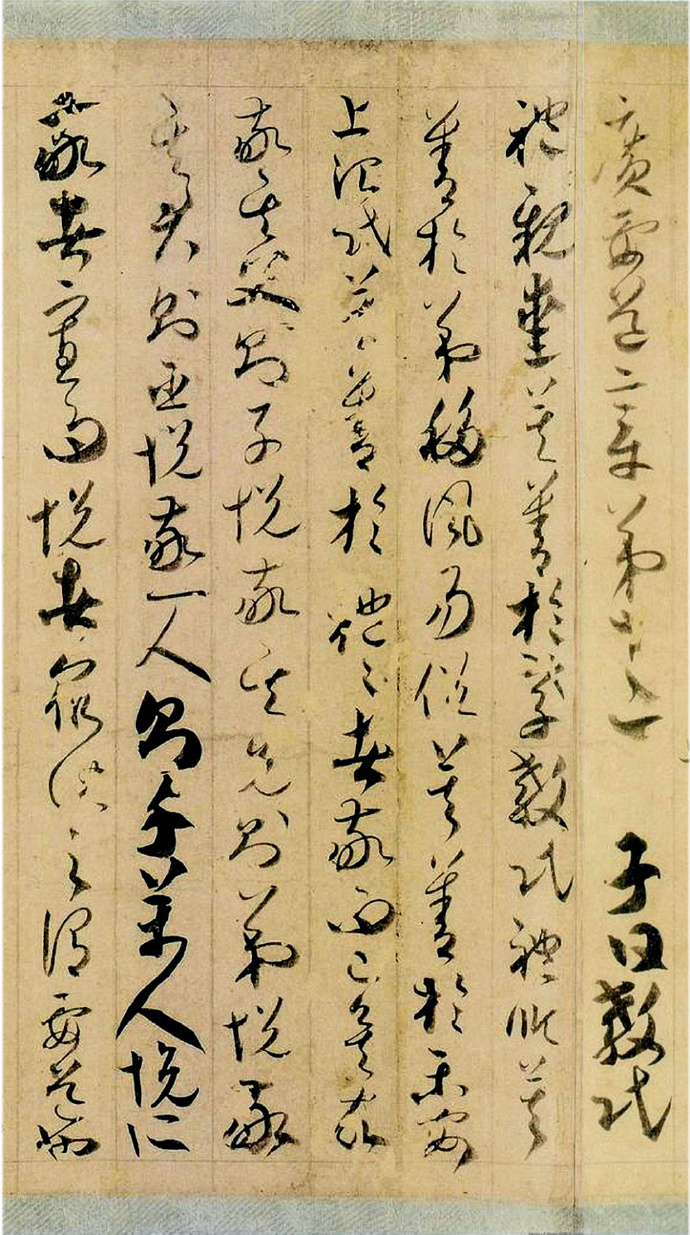 廣要道章第十二　子曰教民
禮親愛莫善於孝教民禮順莫
善於弟移風易俗莫善於樂安
上治民莫善於禮〻者敬而已矣故
敬其父則子悅敬其兄則弟悅敬
其君則臣悅敬一人則千萬人悅所
敬者寡而悅者衆此之謂要道也